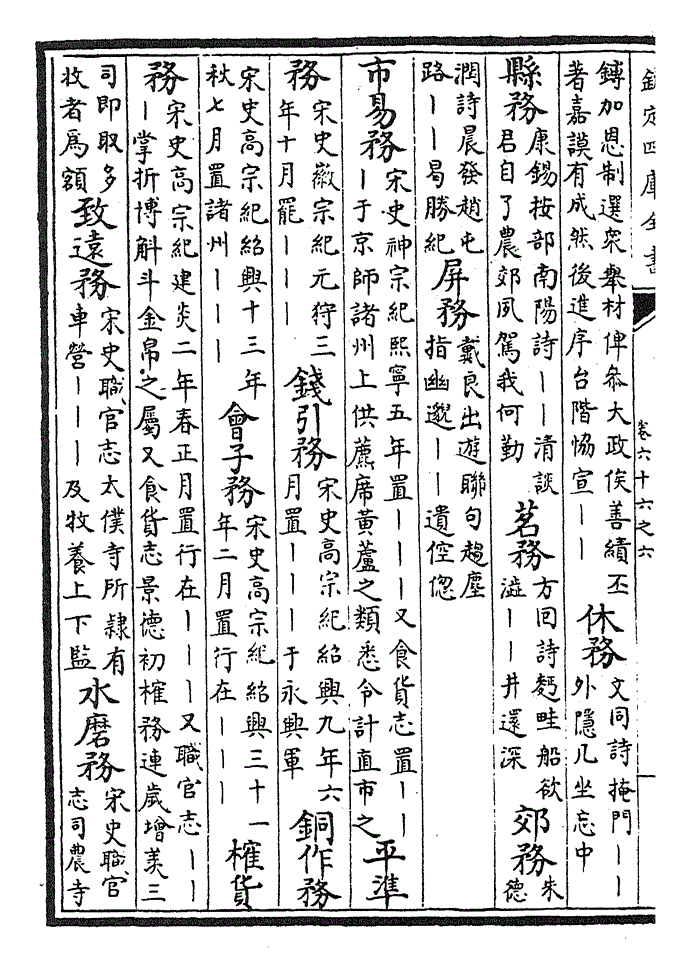 欽定四庫全書
卷六十六之六
鎛加恩制選衆舉材俾叅大政俟善績丕
著嘉謨有成然後進序台階恊宣丨丨
休務
文同詩掩門丨丨
外隱几坐忘中
縣務
康錫按部南陽詩丨丨清談
君自了農郊夙駕我何勤
茗務
方回詩麪畦船欲
澁丨丨井還深
郊務
朱
德
潤詩晨發趙屯
路丨丨曷勝紀
屏務
戴良出遊聯句趨塵
指幽邈丨丨遺倥偬
市易務
宋史神宗紀熙寧五年置丨丨丨又食貨志置丨丨
丨于京師諸州上供薦席黃蘆之類悉令計直市之
平準
務
宋史徽宗紀元狩三
年十月罷丨丨丨
錢引務
宋史高宗紀紹興九年六
月置丨丨丨于永興軍
銅作務
宋史高宗紀紹興十三年
秋七月置諸州丨丨丨
會子務
宋史高宗紀紹興三十一
年二月置行在丨丨丨
榷貨
務
宋史高宗紀建炎二年春正月置行在丨丨丨又職官志丨丨
丨掌折博斛斗金帛之屬又食貨志景德初榷務連歲增羨三
司即取多
收者爲額
致遠務
宋史職官志太僕寺所隷有
車營丨丨丨及牧養上下監
水磨務
宋史職官
志司農寺